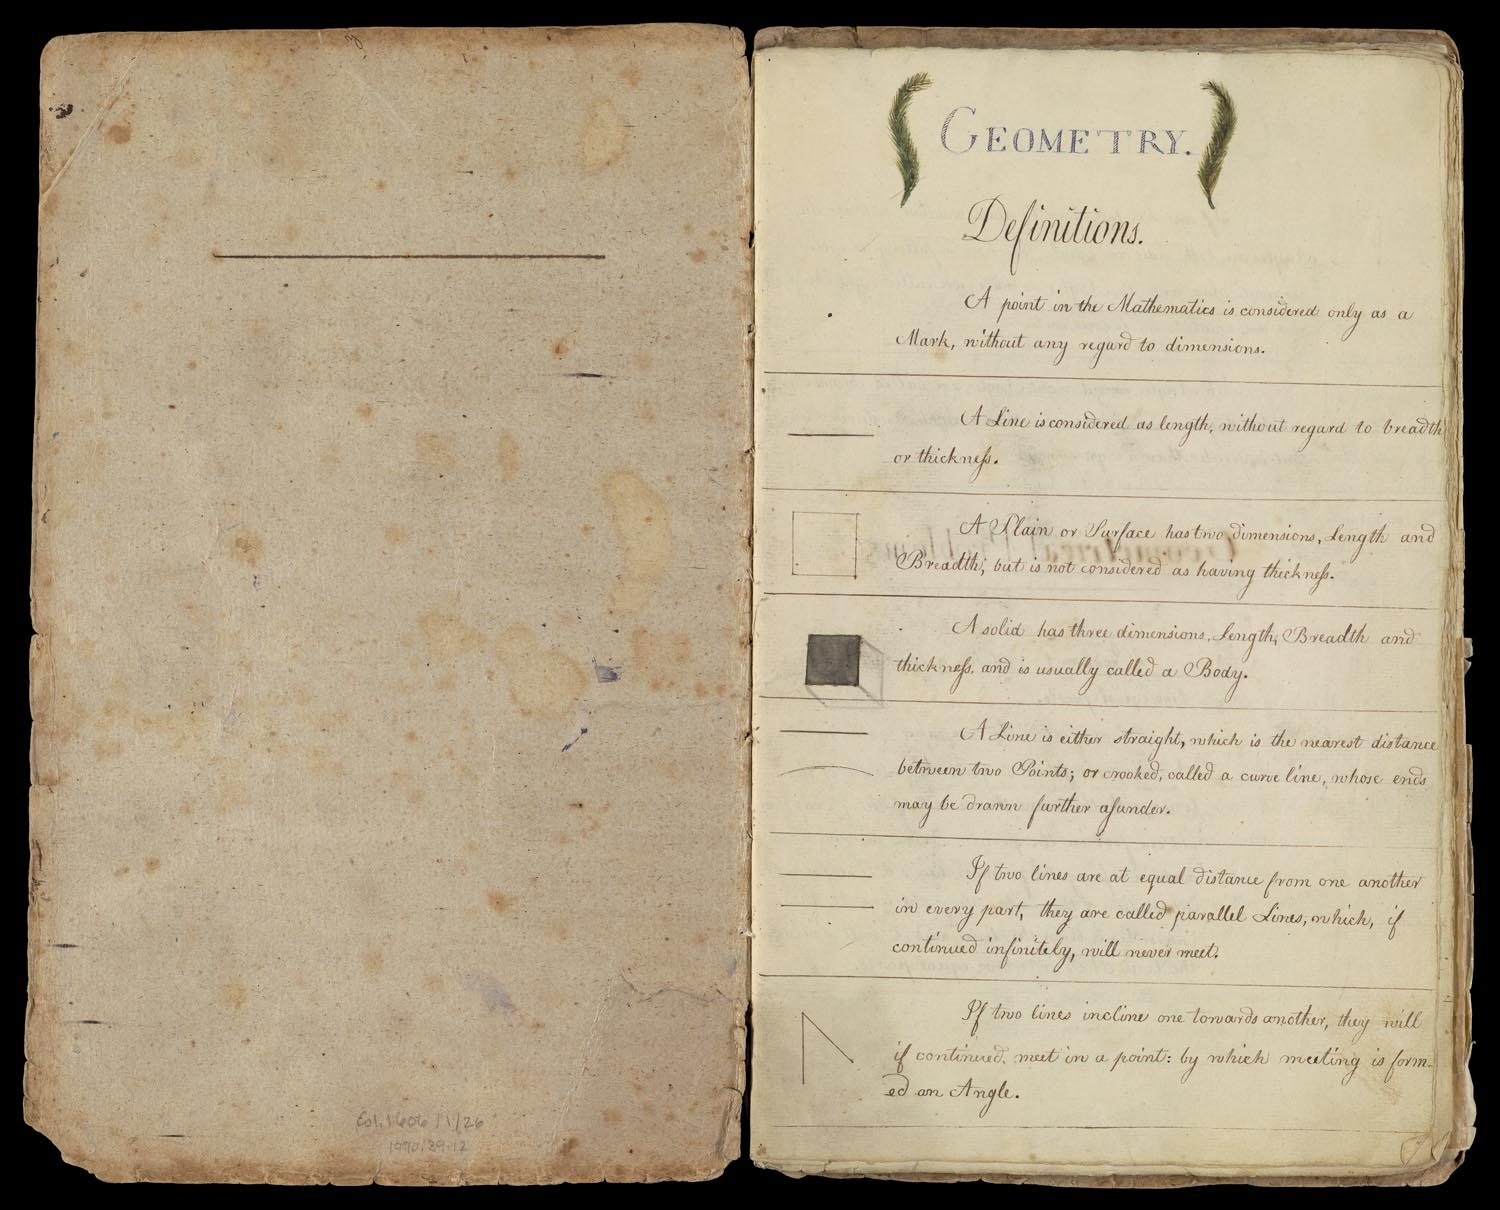 Col. 1606 / 1 / 26
1990.29.12
GEOMETRY.
Definitions.
A point in the Mathematics is considered only as a
Mark, without any regard to dimensions.
A Line is considered as length, without regard to breadth
or thickneſs.
A Plain or Surface has two dimensions, Length and
Breadth; but is not considered as having thickneſs.
A solid has three dimensions, Length, Breadth and
thickneſs, and is usually called a Body.
A Line is either straight, which is the nearest distance
between two Points; or crooked, called a curve line, whose ends
may be drawn further aſunder.
If two lines are at equal distance from one another
in every part, they are called parallel Lines, which, if
continued infinitely, will never meet.
If two lines incline one towards another, they will
if continued, meet in a point: by which meeting is form-
ed an Angle.